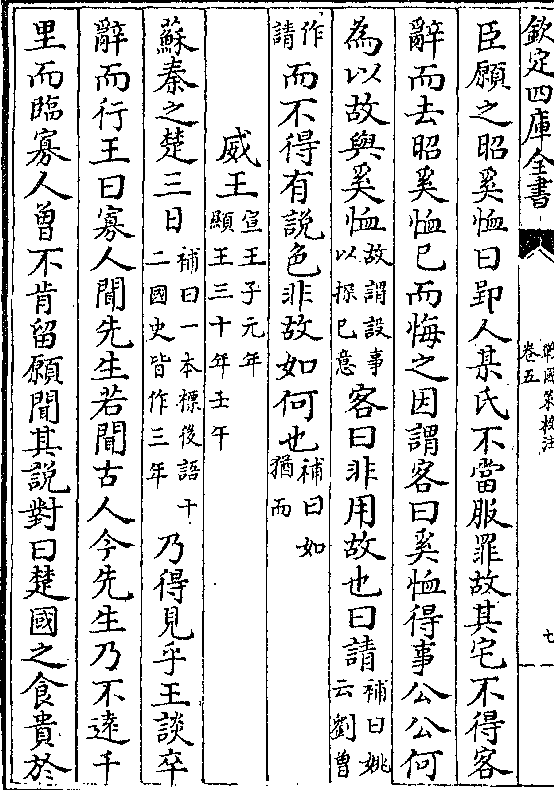 欽定四庫全書
戰國策校注
卷五
七
臣願之昭奚恤曰郢人某氏不當服罪故其宅不得客
辭而去昭奚恤已而悔之因謂客曰奚恤得事公公何
為以故與奚恤故謂設事以探已意客曰非用故也曰請補曰姚云劉曾
作請而不得有説色非故如何也補曰如猶而
威王宣王子元年顯王三十年壬午
蘇秦之楚三日補曰一本標後語十二國史皆作三年乃得見乎王談卒
辭而行王曰寡人聞先生若聞古人今先生乃不逺千
里而臨寡人曾不肯留願聞其説對曰楚國之食貴於